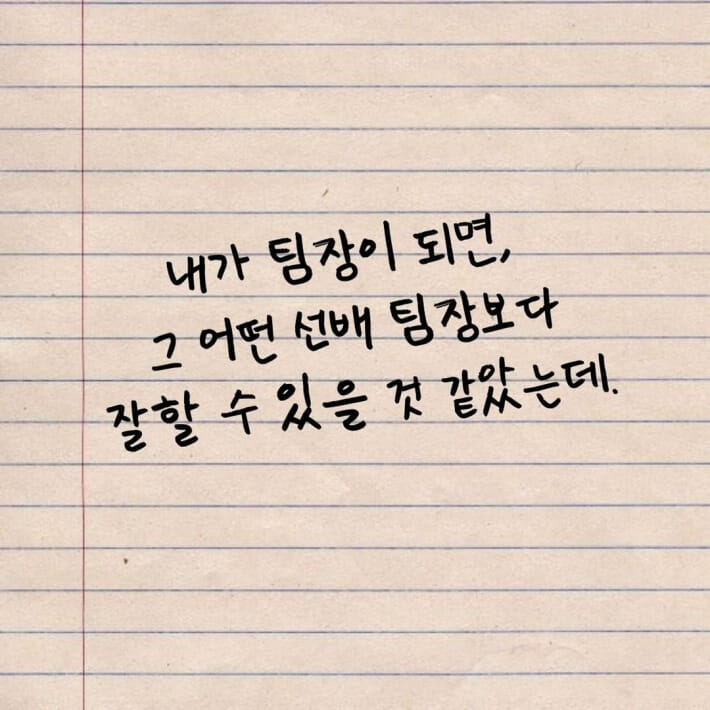 내가 팀장이 되면,
그 어떤 선배 팀장보다
잘할 수 있을 것 같았는데.